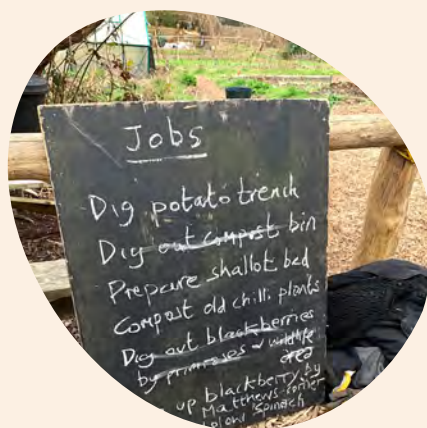 Jobs
Dig potato trench
Dig out compost bin
Prepare shallot bed
Compost old chilli plants
Dig out blackberries
by primroses & wildlife
area
up blackberry by
Matthews corner
spinach